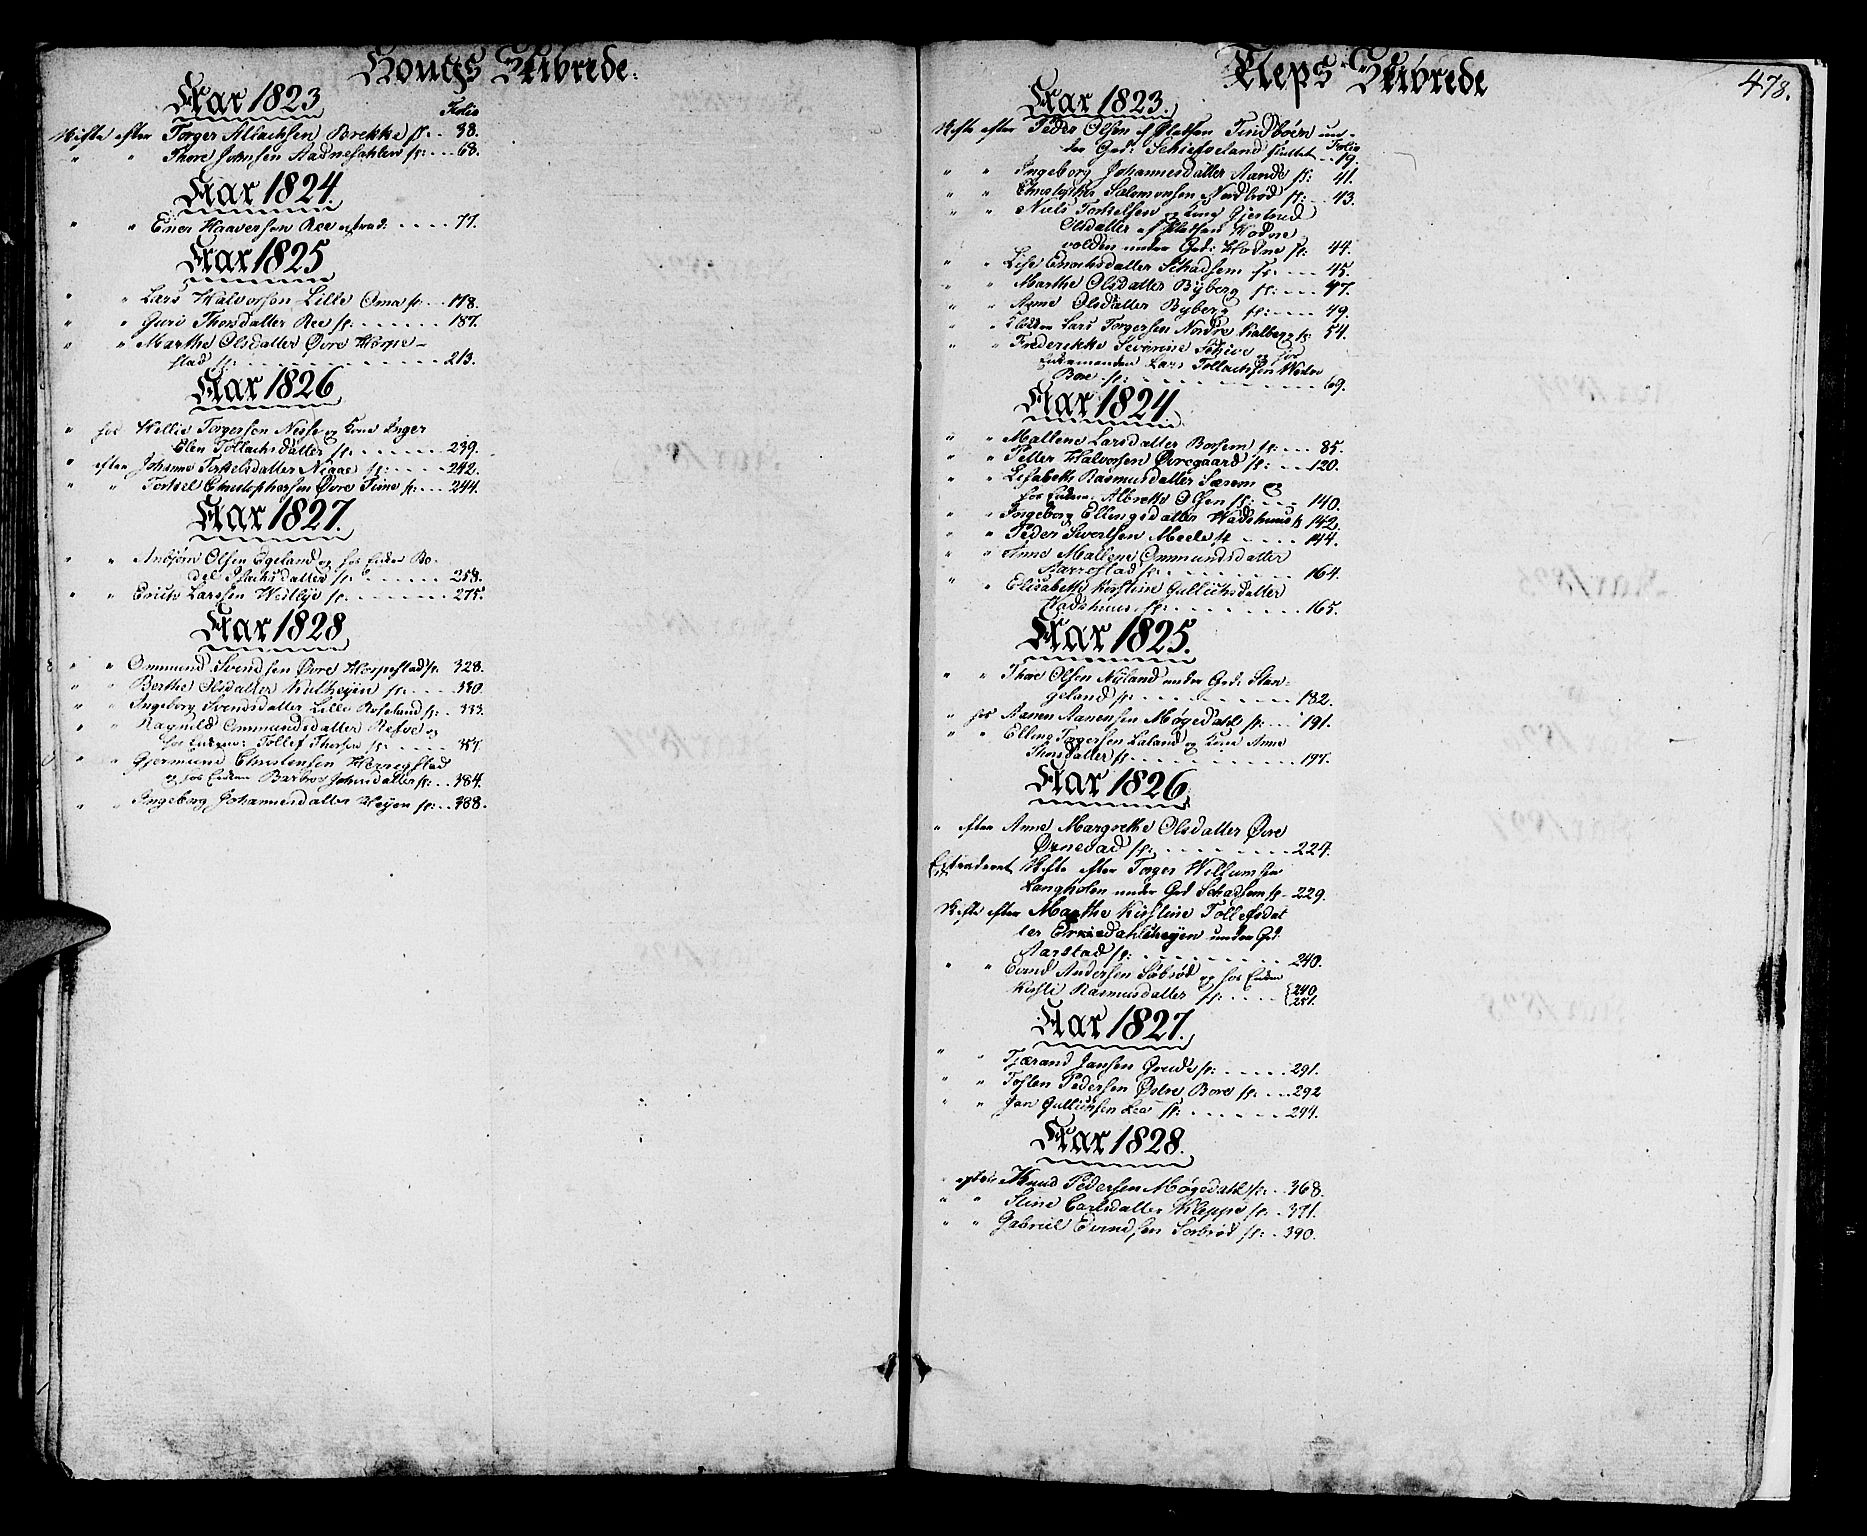 Houghs Skibrede:
Aar 1823
Folio
Skifte efter Torger Allachsen Brekke p: .. 38.
" " Thore Johnsen Aadnesahlen p: ... 68.
Aar 1824.
" " Ener Haaversen Ree extrad: .... 77.
Aar 1825
" " Lars Halvorsen Lille Oma p: .. 178.
" " Guri Thorsdatter Ree p: ...... 187.
" " Marthe Olsdatter Øvre Horpe-
stad p: ............ 213.
Aar 1826
" hos Wellie Torgersen Nesse og Kone Inger
Elen Tollachsdatter p: ....... 239.
" efter Johanne Torkelsdatter Njaae p: ..... 242.
" " Torkel Christophersen Øvre Time p: ... 244.
Aar 1827.
" " Anbjørn Olsen Egeland og hos Enken Bo-
del Isachsdatter p: ....... 258.
" " Erich Larssen Wedlye p: ....... 275.
Aar 1828
" " Ommund Svendsen Øvre Horpestad p: 328.
" " Berthe Olsdatter p: .... 330.
" " Ingeborg Svendsdatter Lille Roseland p: .. 333.
" " Ragnild Ommundsdatter Refve og
hos Enkem: Tollef Thorsen p: ..... 357.
" " Gjermund Christensen Herregstad
og hos Enken Barbroe Johnsdatter p: .. 384.
" " Ingeborg Johannesdatter Høyen p: .. 388.
Kleps Skibrede
478.
Aar 1823.
Skifte efter Peder Olsen af Pladsen Tindbøen un-
Folio
der Grd: Schiefveland sluttet .. 19.
" " Ingeborg Johannesdatter Aande p: 41.
" " Christopher Salemonsen Nordbrød p: .. 43.
" " Niels Torkelsen og Kone Gjertrud
Olsdatter af Pladsen Hodne-
volden under Grd: Hodne p: 44.
" " Lise Enochsdatter Schadsem p: .... 45.
" " Marthe Olsdatter Byberg p: .... 47.
" " Anne Olsdatter Byberg p: .... 49.
" " Lars Torgersen Nordre Kalberg p: 54.
" " Frederikke Severine Schive og hos
Enkemanden Lars Tollachsen
Bore p: ............ 69.
Aar 1824.
" " Mallene Larsdatter Borsem p: ... 85.
" " Petter Halvorsen Øvregaard p: .... 120.
" " Lisabeth Rasmusdatter Særem og
hos Enkem: Albrette Olsen p: .... 140.
" " Ingeborg Ellingsdatter Wadshuus p: 142.
" " Peder Sivertsen Meele p: ..... 144.
" " Anne Mallene Ommundsdatter
Aarrestad p: .......... 164.
" " Elisabeth Kirstine Gullichsdatter
Wadshuus. p: ........ 165.
Aar 1825.
" " Thore Olsen Nyland under Grd: Stan-
geland p: .......... 182.
" hos Aanen Aanensen Møgedahl p: ... 191.
" " Elling Torgersen Laland og Kone Anne
Thorsdatter p: ........... 197.
Aar 1826
" efter Anne Margrethe Olsdatter Øvre
Ørnedad p: ........ 224.
Extraderet Skifte efter Torger Willumsen
Langholen under Grd Schadsem p: .. 229.
Skifte efter Marthe Kirstine Tollefsdat
ter under Grd:
Aarstad p: ......... 240.
" " Evind Andersen Sæbrød og hos Enken
Kirsti Rasmusdatter p: .... {240. 251.
Aar 1827.
" " Tjærand Jansen Grude p: ..... 291.
" " Tosten Pedersen Østre Bore p: ... 292
" " Jan Gullichsen Lea p: ...... 294.
Aar 1828.
" efter Knud Pedersen Møgedahl p: .. 368.
" " Stine Carlsdatter Kleppe p: .. 371.
" " Gabriel Evindsen Sæbrød p: .. 390.